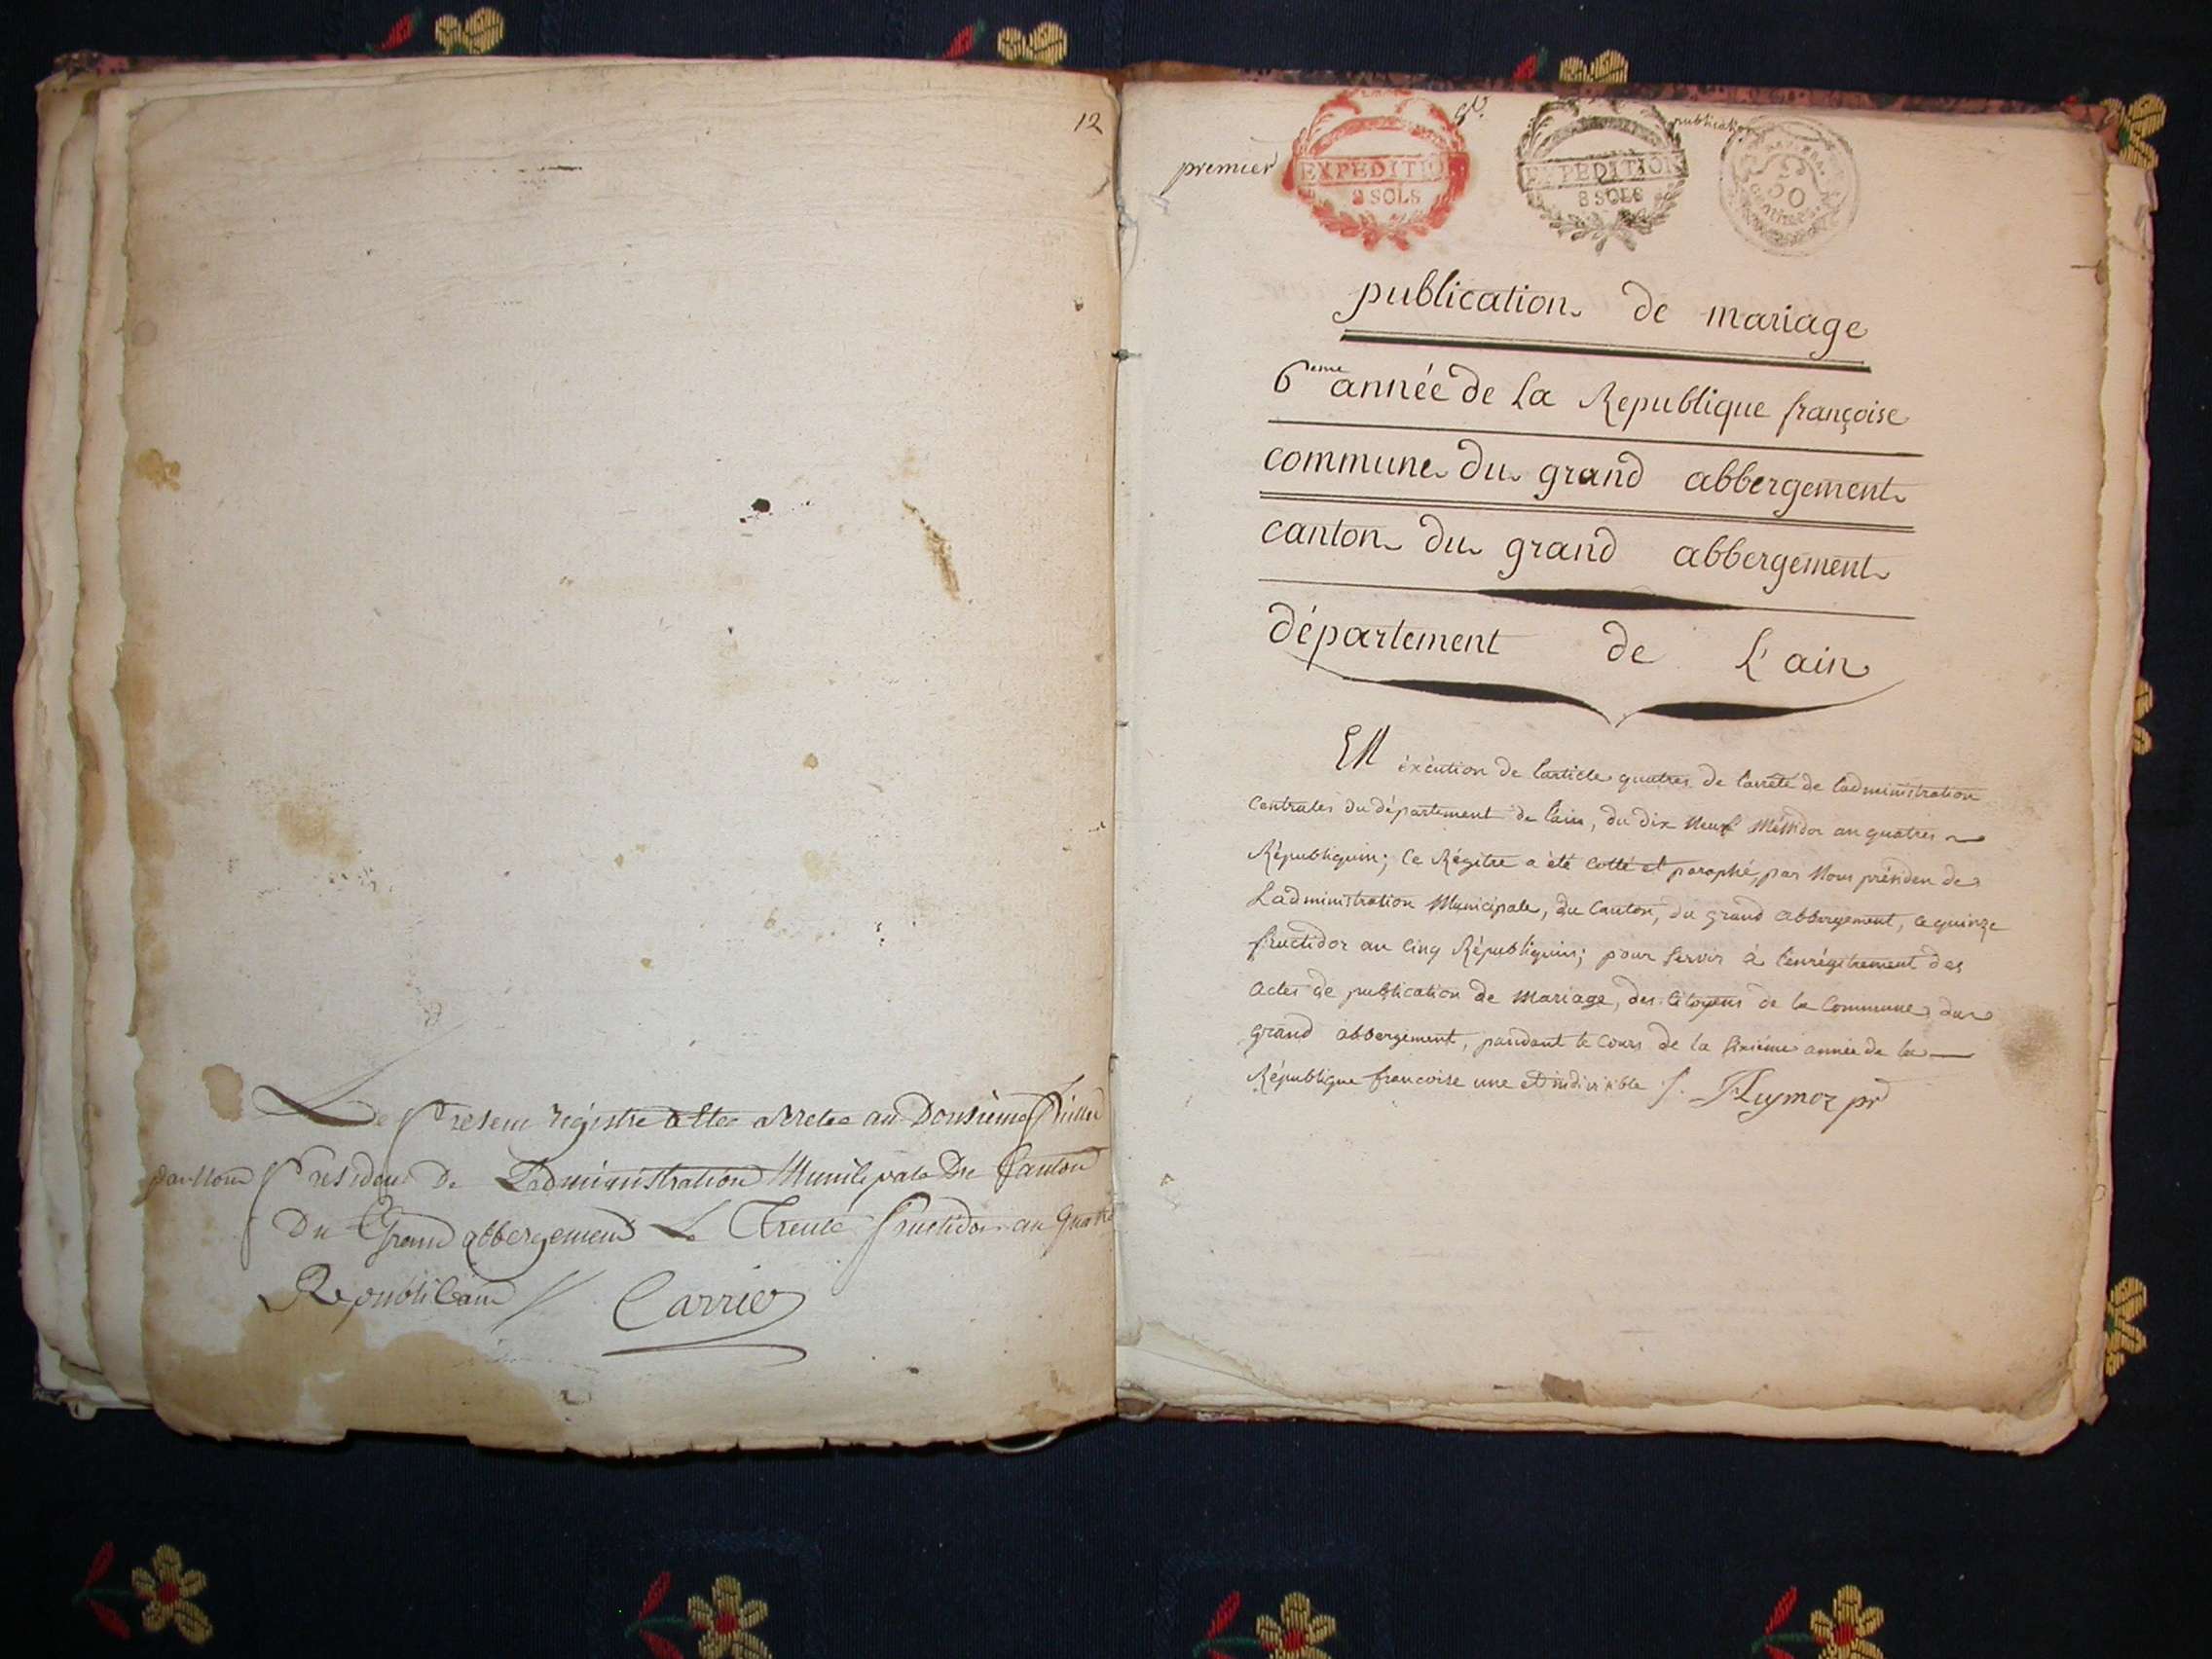 12
Le present régistre a ettee arretee au Dousieme feuillet
par Nous President de Ladministration Municipale Du Canton
Du Grand abbergement Le Trente fructidor an quatre
Republicain // Carrier
premier
EXPEDITION
8 SOLS
EXPEDITION
8 SOLS
publication
50
centimes
publication de mariage
6eme année de La Republique françoise
commune du grand abbergement
canton du grand abbergement
département de L'ain
EN éxécution de l'article quatres de l'arrêté de l'administration
Centrales du département de l'ain, du dix Neuf Méssidor an quatres
Républiquin; Ce Régitre a été Cotté et paraphé, par Nous présiden de
Ladministration Municipale, du Canton, du grand abbergement, le quinze
fructidor an Cinq Républiquin; pour servir à l'enrégitrement des
Actes de publication de Mariage, des Citoyens de la Commune du
grand abbergement, pandant le Cours de la sixiéme année de la
République francoise une et indivisible /.